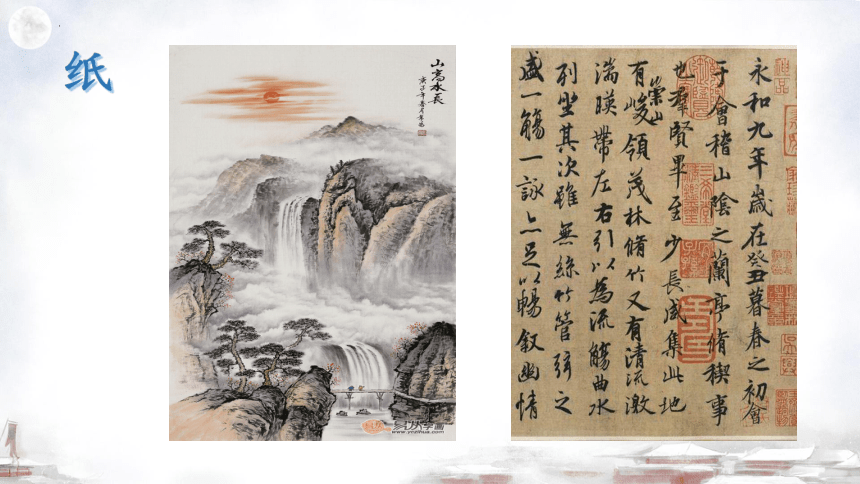 纸
山高水长
永和九年歲在癸丑暮春之初會
于會稽山陰之蘭亭脩稧事
也羣賢畢至少長咸集此地
有崇山峻領茂林脩竹又有清流激
湍暎帶左右引以為流觴曲水
列坐其次雖無絲竹管弦之
盛一觴一詠亦足以暢敘幽情
易从字画
www.yihua.com